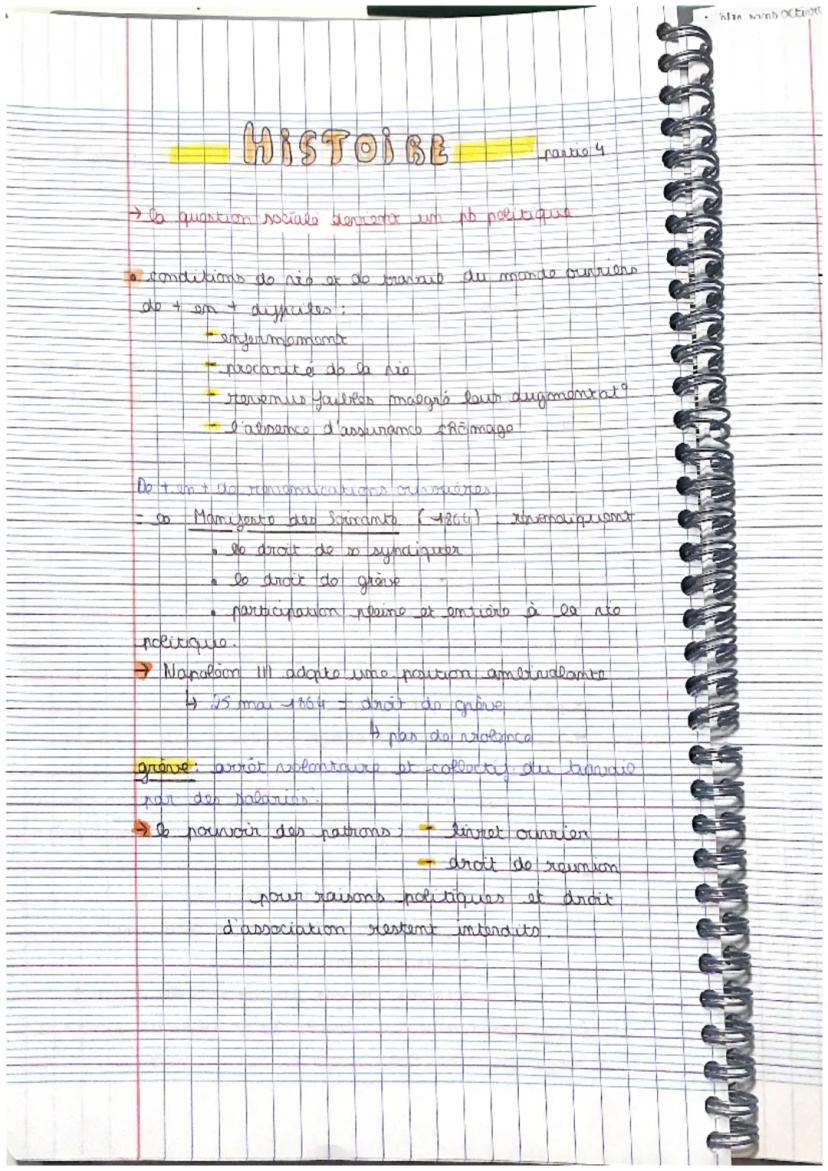 HiSTOiRE partie 4
→ la question sociale devient un pb politique
• conditions de vie et de travail du monde ouvriers
de + en + difficiles :
- enfermement
- précarité de la vie
- revenus faibles malgré leur augmentat°
- l'absence d'assurance chômage
De + en + de revendications ouvrières
= Manifeste des Soixante (1864) : revendiquent
• le droit de se syndiquer
• le droit de grève
• participation pleine et entière à la vie
politique.
→ Napoléon III adopte une position ambivalente
↳ 25 mai 1864 = droit de grève
↳ pas de violence
grève : arrêt volontaire et collectif du travail
par des salariés.
→ le pouvoir des patrons : - livret ouvrier
- droit de reunion
pour raisons politiques et droit
d'association restent interdits.